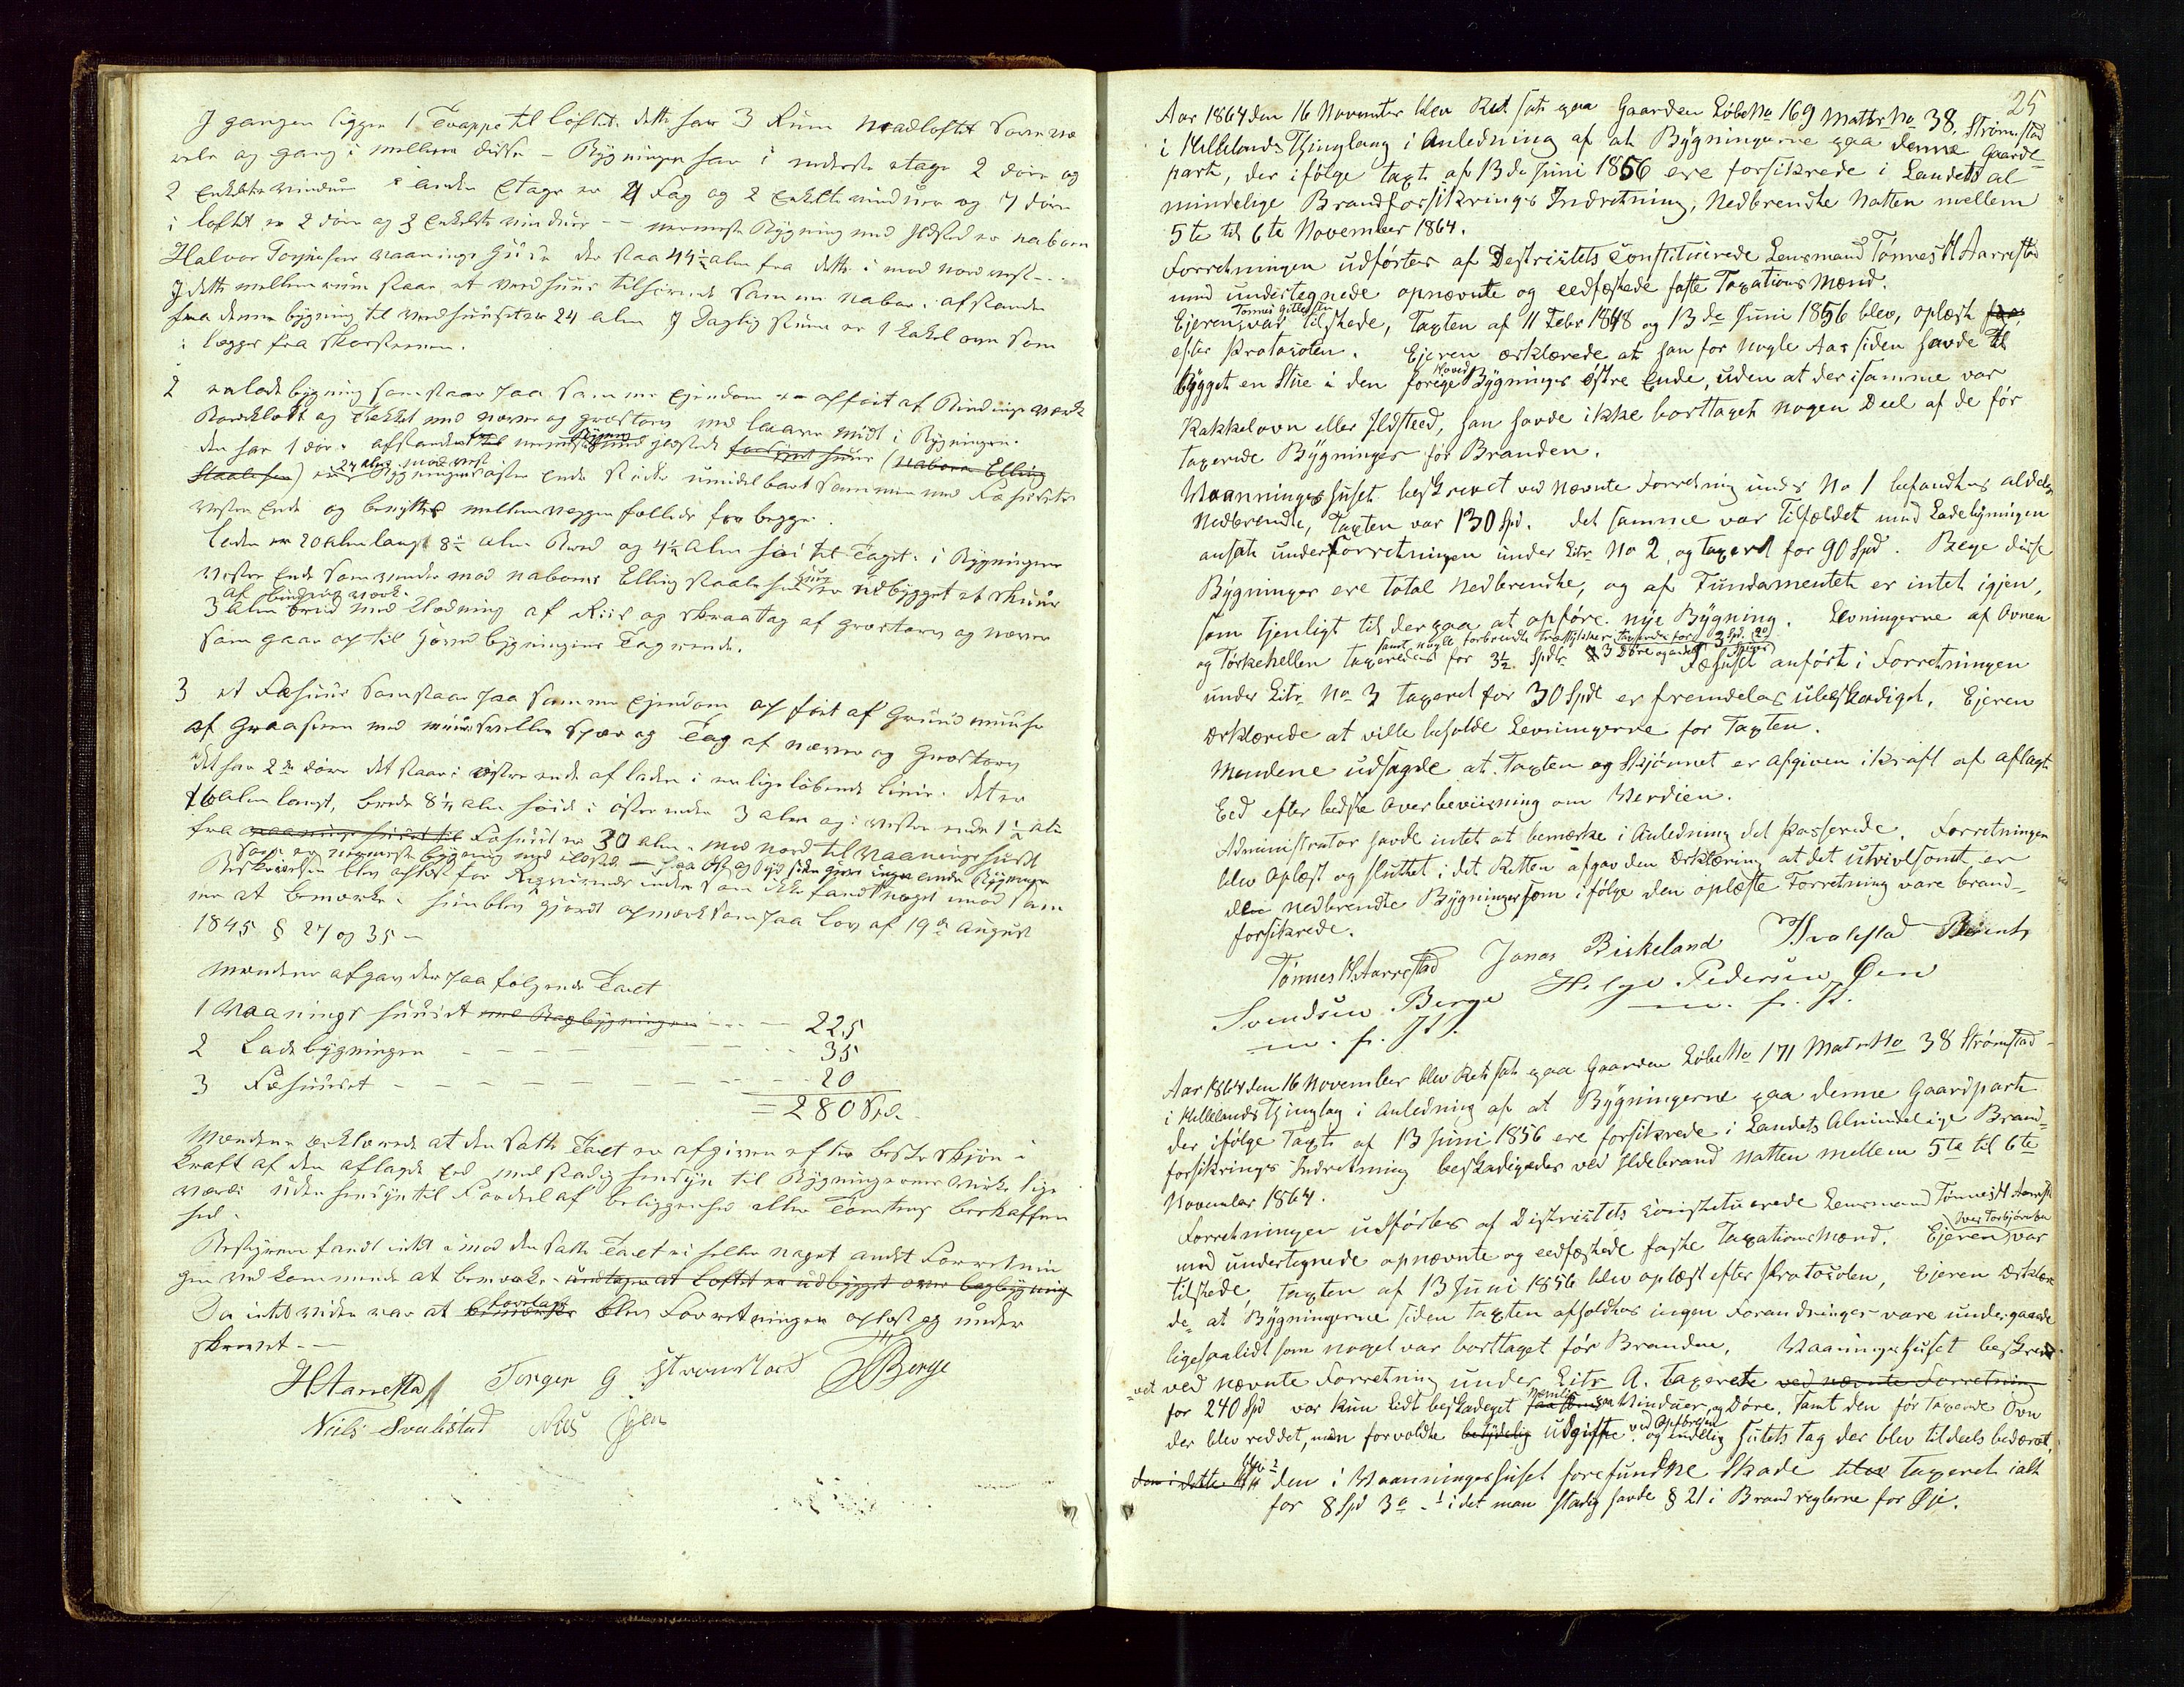 I gangen ligger 1 Trappe til loftet. dette har 3 Rum
og gang i mellem disse – Bygningen har i nederste etage 2 döre og
2 enkelte vinduer i anden Etage er 4 Fag og 2 enkelte vinduer og 7 döre
i loftet er 2 döre og 3 enkelte vinduer – nermeste Bygning med Ildsted er naboen
Halvor vaanings Huus der staar 44½ alen fra dette i mod nord vest –
I dette mellemrum staar et vedhuus tilhörende samme nabo. afstanden
fra denne bygning til vedhuuset er 24 alen I Daglig stuen er 1 kakelovn som
i lægges fra skorstenen.
2 en lade bygning som staar paa samme ejendom er opfört af Bindingsverk
Bordklædt og Tækket med næver og græstorv med laave midt i Bygningen.
den har 1 dör. afstanden fra nermeste Bygning med Ildsted (naboen Elling
Staalesen) er 24 alen mod vest Bygningens östre ende stöder umidelbart sammen med Fæhusets
vestre ende og benyttes mellemveggen felleds for begge.
laden er 20 alen lang 8½ alen Bred og 4½ alen höi til Taget. i Bygningens
vestre ende som vender mod naboens Elling Staalesens huus er udbygget et skuur
af bindings værk.
3 alen bred med Klædning af Riis og skraatag af græstorv og næver
som gaar op til hovedbygningens Tagrende.
3 et Fæhuus som staar paa samme ejendom opfört af Grundmuure
af Graasteen med muursviller Sper og Tag af næver og Græstorv
det har 2de döre det staar i östre ende af laden i en lige löbende linie. det er
16 alen langt, brede 8½ alen höide i östre ende 3 alen og i vestre ende 1½ alen
fra vaaningshuset til Fæhuset er 30 alen. mod nord til vaaningshuset
som er nermeste bygning med ildsted – paa öst og syd siden gives ingen andre Bygninger
Beskrivelsen blev oplæst for Reqvirenten som ikke fandt noget imod sam
me at bemærke. hun blev gjordt opmerksom paa Lov af 19de August
1845 § 27 og 35 –
mændene afgav derpaa fölgende Taxt
1 Vaanings huuset med Bagbygningen – – – 225
2 Ladebygningen – – – – – – 35
3 Fæhuuset – – – – – – – 20
= 280 Spd.
Mændene erklærede at den satte Taxt er afgiven efter beste skjön i
kraft af den aflagde Eed med stadig hensyn til Bygningernes virkelige
værdi uden hensyn til Fordeel af beliggenhed eller Tomtens beskaffen
hed.
Bestyreren fandt intet imod den satte Taxt ei heller noget andet Forretnin
gen vedkommende at bemærke – undtagen at loftet er udbygget over bagbygning
Da intet videre var at bemærke foretage blev Forretningen oplæst og under
skrevet. –
HAarrestad Torger G Strömstad JBerge
Niels Svalestad Nils Igeln
25
Aar 1864 den 16 November blev Ret sat paa Gaarden Löbe No 169 Mattr No 38. Strömstad
i Hellelands Thinglaug i Anledning af at Bygningerne paa denne Gaard-
part, der ifölge Taxt. af 13de Juni 1856 ere forsikrede i Landets al
mindelige Brandforsikrings Indretning, Nedbrendte Natten mellem
5te til 6te November 1864.
Forretningen udförtes af Destriktets Constituerede Lensmand Tönnes H Aarrestad
med undertegnede opnævnte og eedfæstede faste Taxations Mænd.
Tönnes Gitlesen
Ejeren var tilstede, Taxten af 11 Febr 1848 og 13de Juni 1856 blev, oplæst for,
efter Protocolen. Ejeren ærklærede at han for nogle Aar siden havde til
bygget en Stue i den forrige Hoved Bygnings östre Ende, uden at der i samme var
Kakkelovn eller Ildsteed, han havde ikke borttaget nogen Deel af de för
taxerede Bygninger för Branden.
Waanningshuset beskrevet ved nævnte Forretning under No 1 befandtes aldeles
Nedbrendte, Taxten var 130 Spd. Det samme var Tilfældet med Ladebygningen
ansat under Forretningen under Litr. No 2 og taxert for 90 Spd. Bege disse
Bygninger ere total nedbrendte, og af Fundamentet er intet igjen,
som tjenligt til derpaa at opföre nye Bygning. Levningerne af Ovnen
samt nogle forbrendte Træstykker taxerede for 2 Spd. 20
og Törkehellen taxeredes for 3½ Spdlr. 3 Döre og andet Fæhuset anfört i Forretningen
under Litr. No 3 taxeret for 30 Spdl er fremdeles ubeskadiget, Ejeren
ærklærede at ville beholde Levningerne for Taxten.
Mendene udsagde at Taxten og Skjönnet er afgiven i kraft af aflagt
Eed efter bedste Overbeviisning om Verdien.
Administrator havde intet at bemærke i Anledning det Passerede. Forretningen
blev oplæst og sluttet i det Retten afgav den Ærklæring at det utvivlsomt er
de nedbrendte Bygninger som ifölge den oplæste Forretning vare brand-
forsikrede.
Tönnes H Aarrestad Jonas Birkeland Svalestad Berent
Svendsen Berge Helge Pedersen Öen
m. f. P. m. f. P.
Aar 1864 den 16 November blev Ret sat paa Gaarden Löbe No 171 Matr No 38 Strömstad
i Hellelands Thinglag i Anledning af at Bygningerne paa denne Gaardpart
der ifölge Taxt. af 13 Juni 1856 ere forsikrede i Landets Almindelige Brand-
forsikrings Indretning beskadigedes ved Ildebrand Natten mellem 5te til 6te
November 1864.
Forretningen udförtes af Distriktets Constituerede Lensmand Tönnes H Aarrestad
med undertegnede opnævnte og eedfæstede faste Taxations Mænd. Ejeren Iver Torbjörnsen var
tilstede, Taxten af 13 Juni 1856 blev oplæst efter Protocolen, Ejeren Ærklære
de at Bygningerne siden Taxten afholdtes ingen Forandringer vare undergaaede
ligesaalidt som noget var borttaget för Branden. Waaningshuset beskre
vet ved nævnte Forretning under Litr. A. taxerete ved nævnte Forretning
for 240 Spd var kun lidt beskadeget nemlig paa Vinduer og Döre. samt den för taxerede Ovn
der blev reddet, men forvoldte betydelig Udgifte ved Opbrejen og endelig husets Tag der blev tildeels bedærvet,
den i Waanningshuset forefundne Skade blev taxeret ialt
for 8 Spd 3 - idet man stadig havde § 21 i Brandreglerne for Öje.